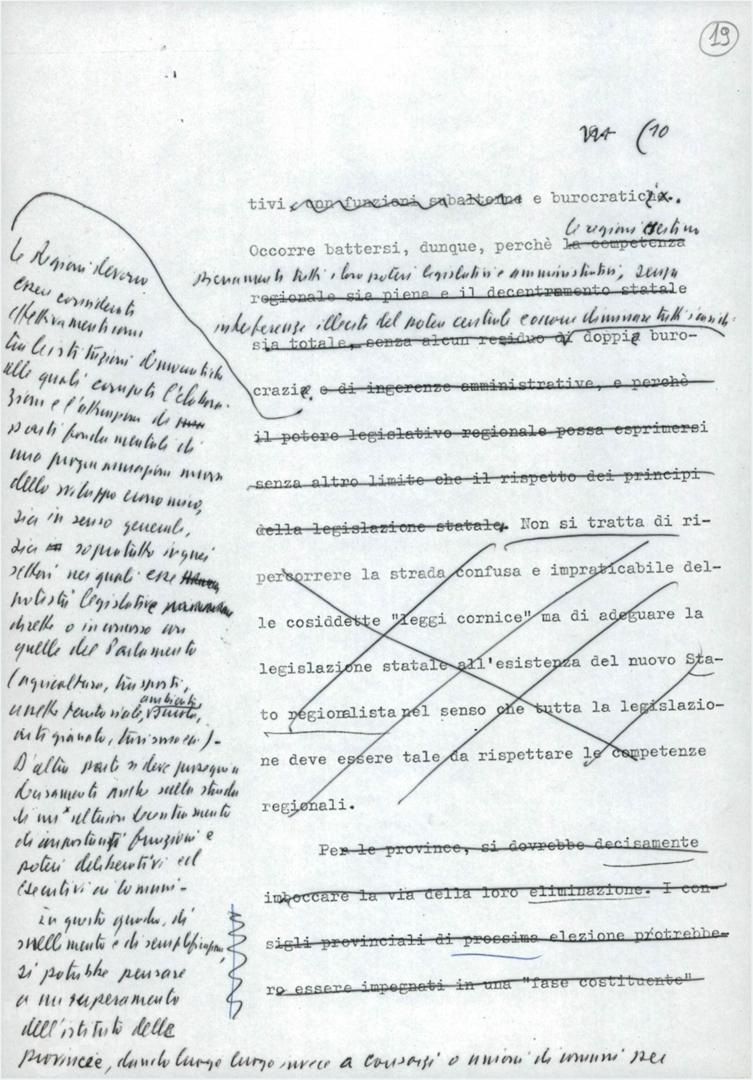 19
(10
tivi, non funzioni subalterne e burocratiche.
le regioni gestino
Occorre battersi, dunque, perchè la competenza
pienamente tutti i loro poteri legislativi e amministrativi, senza
regionale sia piena e il decentramento statale
interferenze illecite del potere centrale e occorre eliminare tutti i residui
sia totale, senza alcun residuo di doppia buro-
crazia e di ingerenze amministrative, e perchè
il potere legislativo regionale possa esprimersi
senza altro limite che il rispetto dei principi
della legislazione statale. Non si tratta di ri-
percorrere la strada confusa e impraticabile del-
le cosiddette "leggi cornice" ma di adeguare la
legislazione statale all'esistenza del nuovo Sta-
to regionalista nel senso che tutta la legislazio-
ne deve essere tale da rispettare le competenze
regionali.
Per le province, si dovrebbe decisamente
imboccare la via della loro eliminazione. I con-
sigli provinciali di prossima elezione potrebbe-
ro essere impegnati in una "fase costituente"
Le Regioni devono
esser considerate
effettivamente come
tra le istituzioni democratiche
alle quali competi l'elabora-
zione e l'attuazione di
parti fondamentali di
una programmazione nuova
dello sviluppo economico,
sia in senso generale,
sia sopratutto in quei
settori nei quali esse
potestà legislative
dirette o in concorso con
quelle del Parlamento
(agricoltura, trasporti,
assetto territoriale, ambiente,
artigianato, turismo ecc.).
D'altra parte si deve proseguire
decisamente anche sulla strada
di un ulteriore decentramento
di importanti funzioni e
poteri deliberativi ed
esecutivi ai Comuni.
In questo quadro, di
snellimento e di semplificazione,
si potrebbe pensare
a un superamento
dell'istituto delle
province, dando luogo luogo invece a consorzi o unioni di comuni per